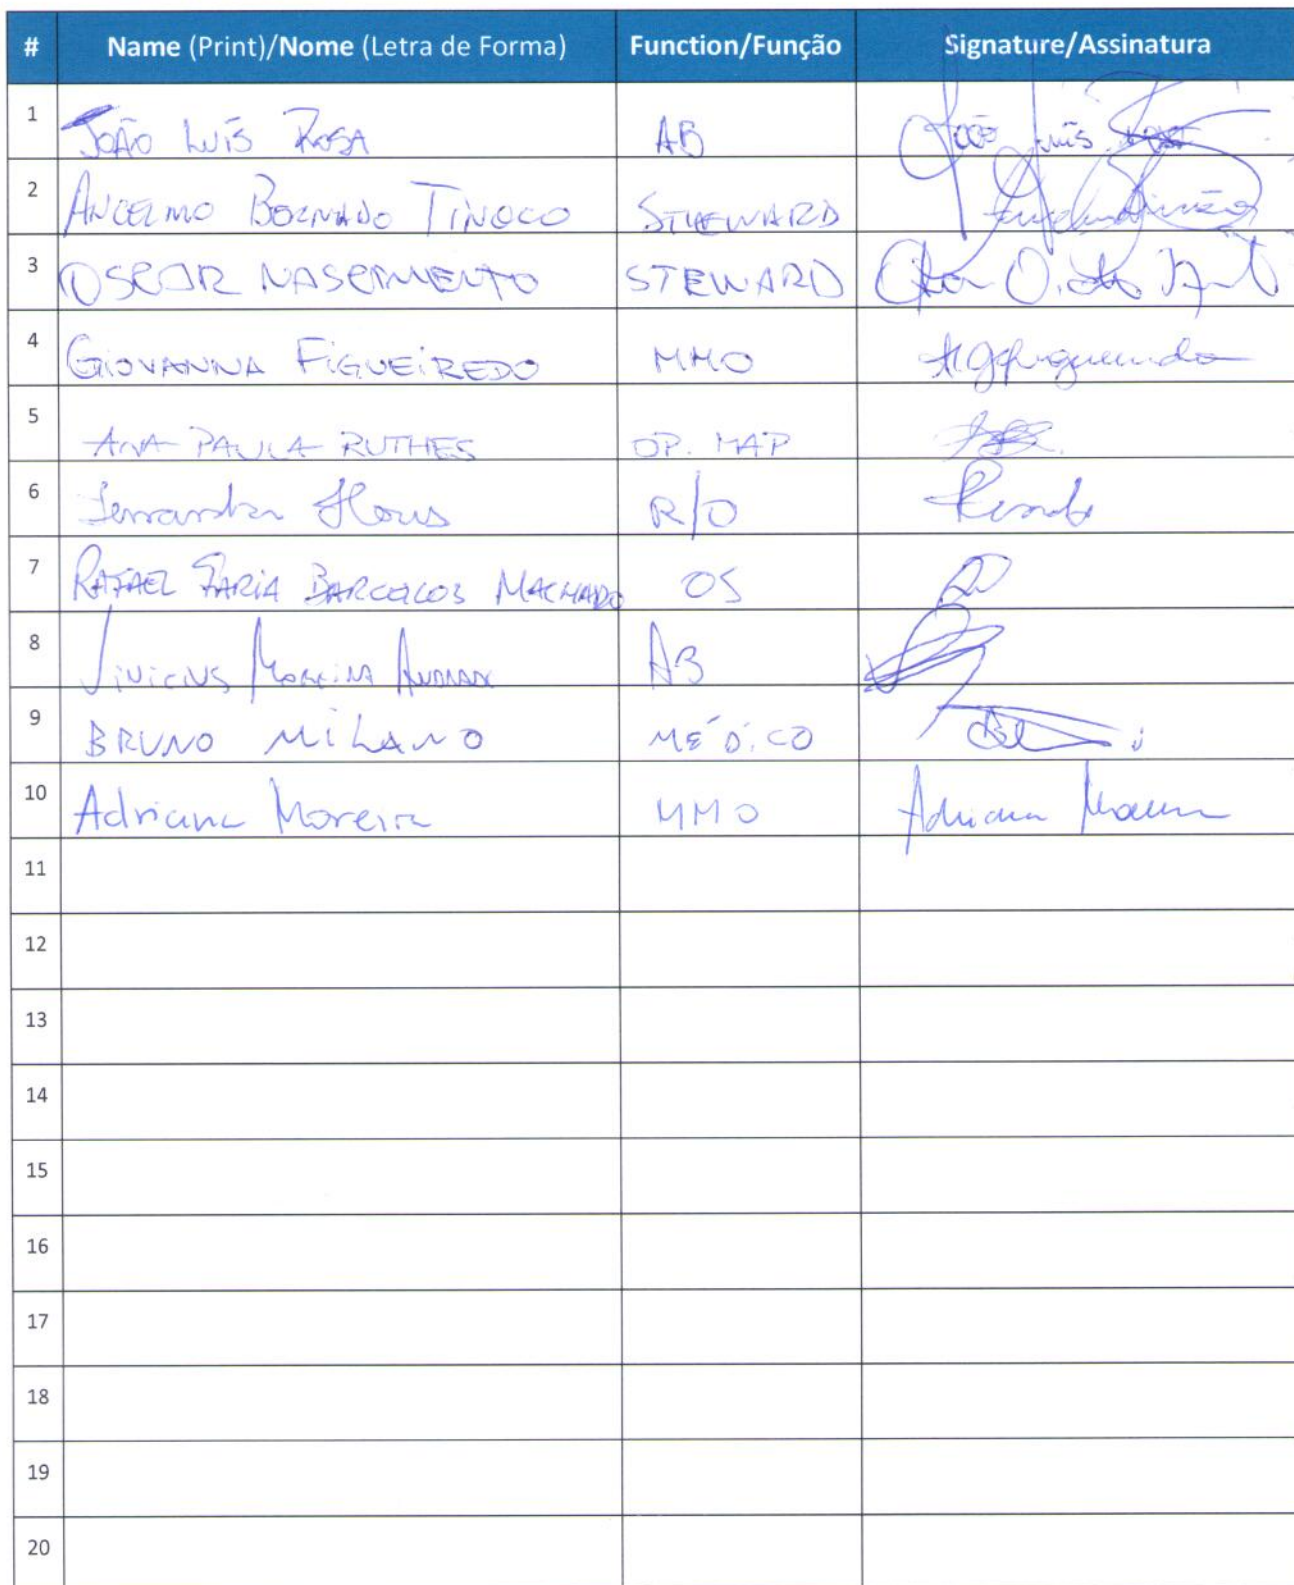 # Name (Print)/Nome (Letra de Forma) Function/Função Signature/Assinatura
1 JOÃO LUÍS ROSA AB João Luís Rosa
2 ANCELMO TINOCO STHEWARD
3 OSCAR NASCIMENTO STEWARD
4 GIOVANNA FIGUEIREDO MMO
5 ANA PAULA RUTHES OP. MAP
6 R/O
7 RAFAEL FARIA BARCELOS MACHADO OS
8 VINICIUS MOREIRA ANDRADE AB
9 BRUNO MILANO MÉDICO
10 Adriana Moreira MMO Adriana Moreira
11
12
13
14
15
16
17
18
19
20